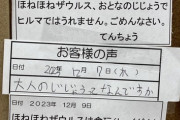 ほねほねザウルス、おとなのじじょうで
ヒルマではうれません。ごめんなさい。
てんちょう
お客様の声
日付 2023年 12月 7日(木)
大人のじじょうってなんですか
日付 2023年 12月 9日
ほねほねザウルスは